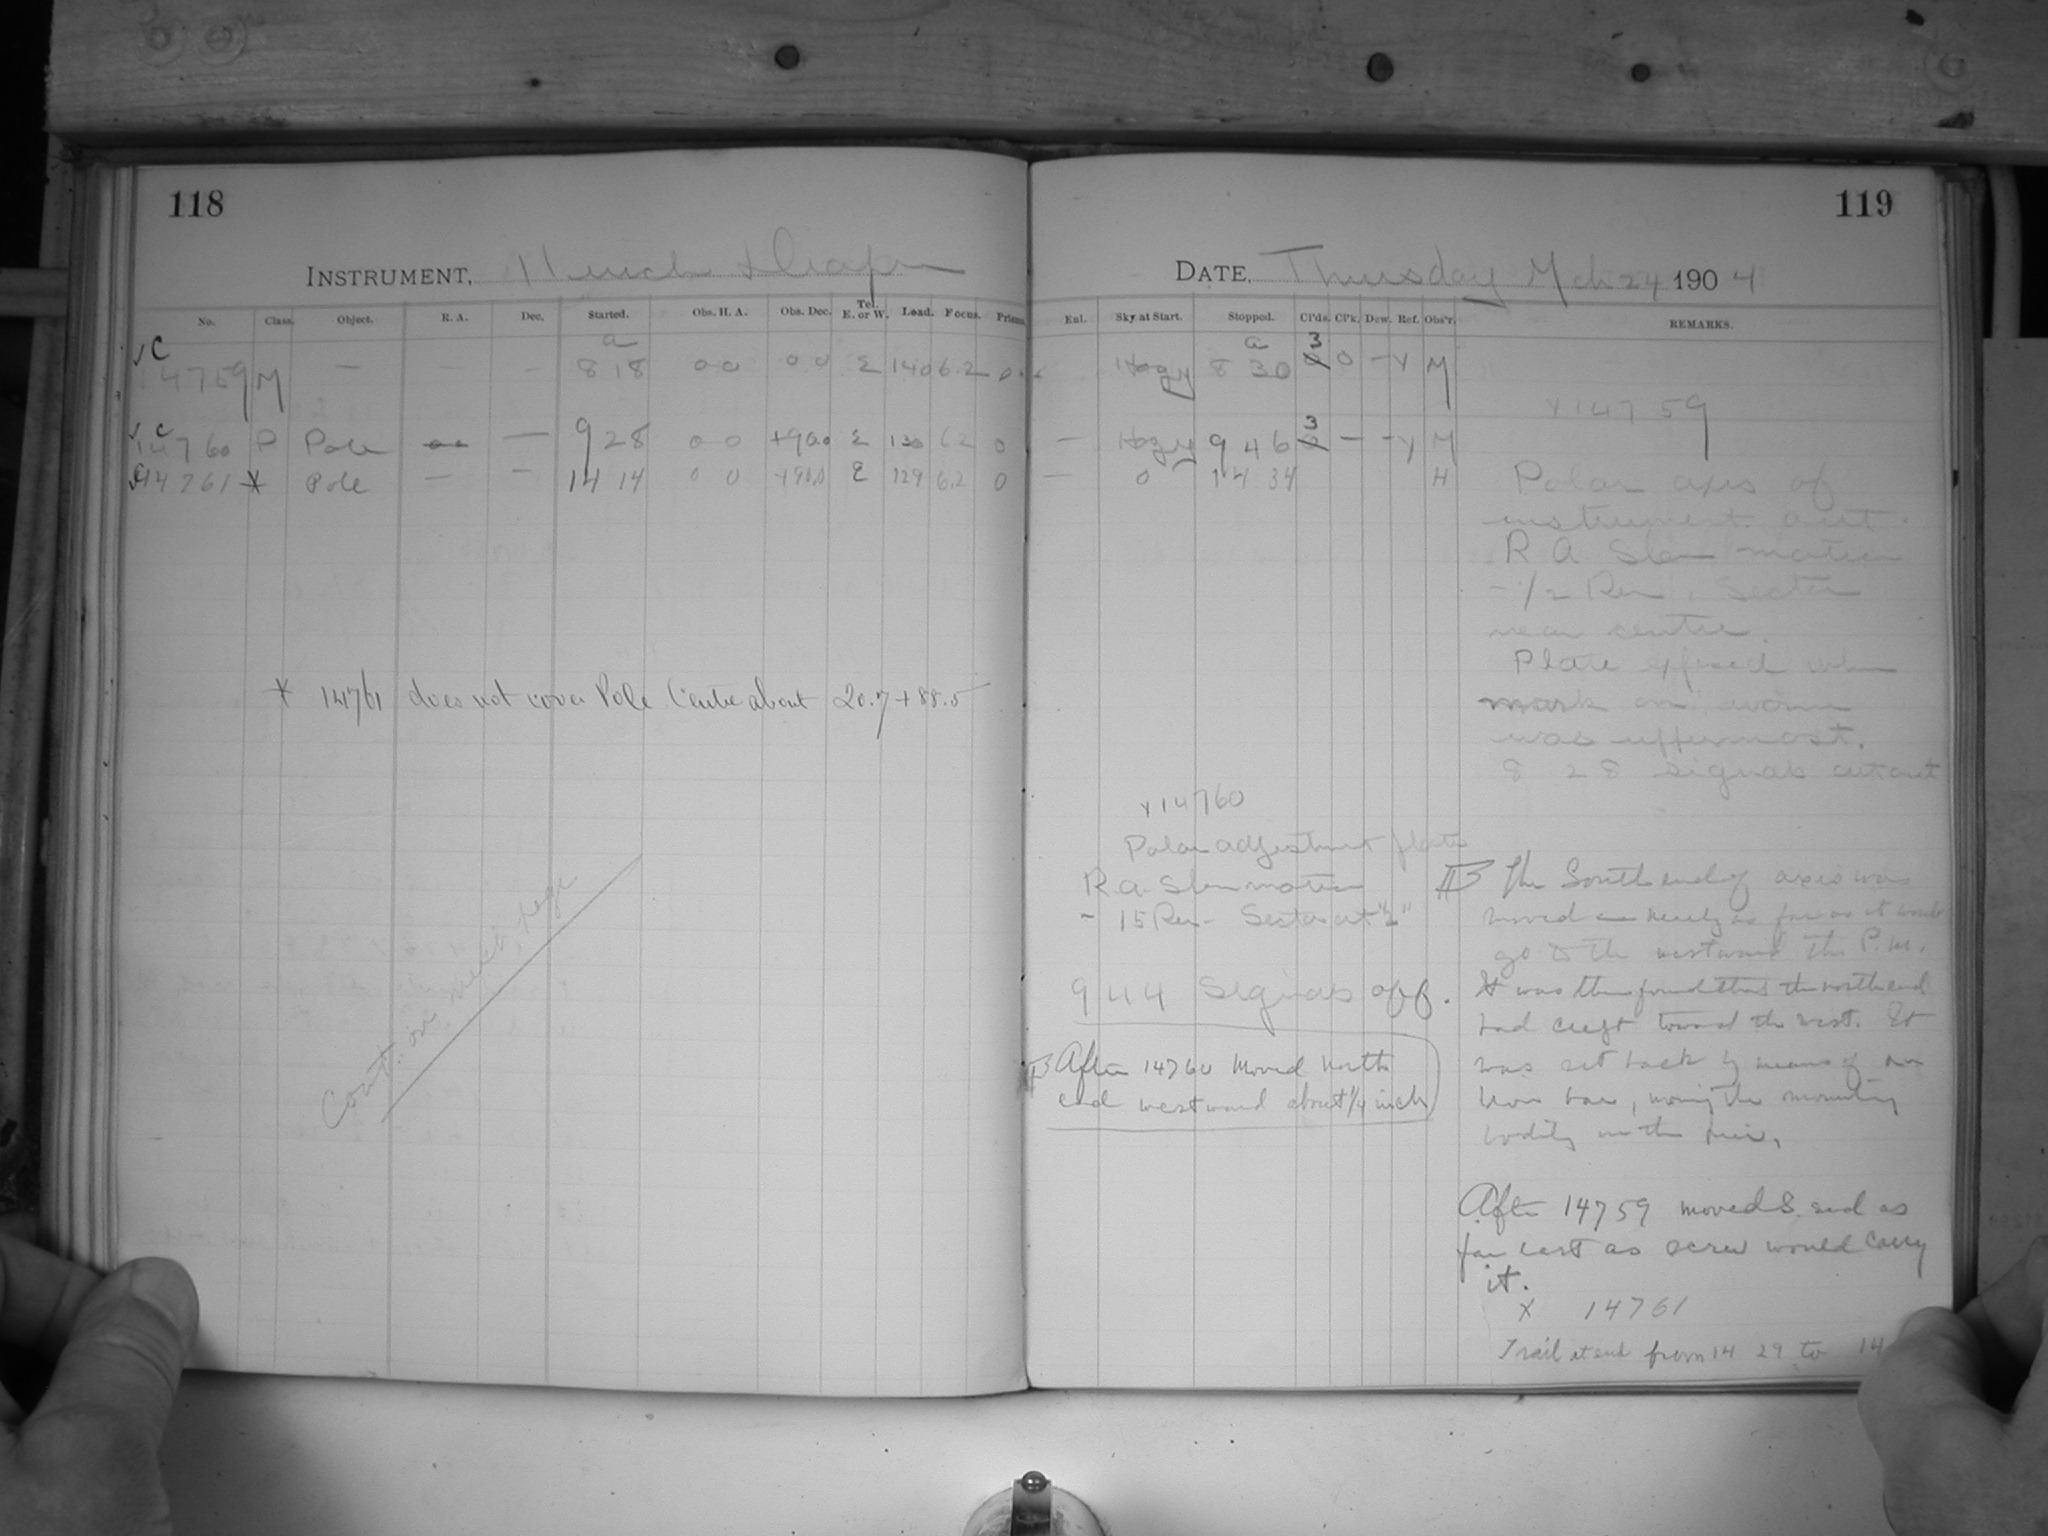 118
INSTRUMENT, 11 inch Draper
No. Class. Object. R. A. Dec. Started. Obs. H. A. Obs. Dec. Tel. E. or W. Load. Focus. Prisms
C a
14759 M — — - 8 18 0 0 0 0 E 140 6.2 0
C
14760 P Pole — 9 28 0 0 +90.0 E 130 6.2 0
C 14761 * Pole — — 14 14 0 0 +90.0 E 129 6.2 0
* 14761 does not cover Pole Centre about 20.7 + 88.5
Cont. on next page
119
DATE, Thursday Mch 24 1904
Enl. Sky at Start. Stopped. Cl'ds. Cl'k. Dew. Ref. Obs'r. REMARKS.
a 3
Hazy 8 30 0 0 - Y M
x 14759
3
— Hazy 9 46 0 — - Y M
— 0 14 34 H
Polar axis of
instrument out.
R A Slow motion
- 1/2 Rev. Sector
near centre.
Plate exposed when
mark on worm
was uppermost.
8 28 signals cut out
x 14760
Polar adjustment plate
R. a. Slow motion
- 15 Rev - Sector at "2"
9 44 Signals off.
After 14760 moved north
end westward about 1/4 inch
The South end of axis was
moved nearly as far as it would
go to the westward this P.M.
It was then found that the north end
had crept toward the west. It
was set back by means of an
iron bar, moving the mounting
bodily on the pier.
After 14759 moved S. end as
far east as screw would carry
it.
x 14761
Trail at end from 14 29 to 14